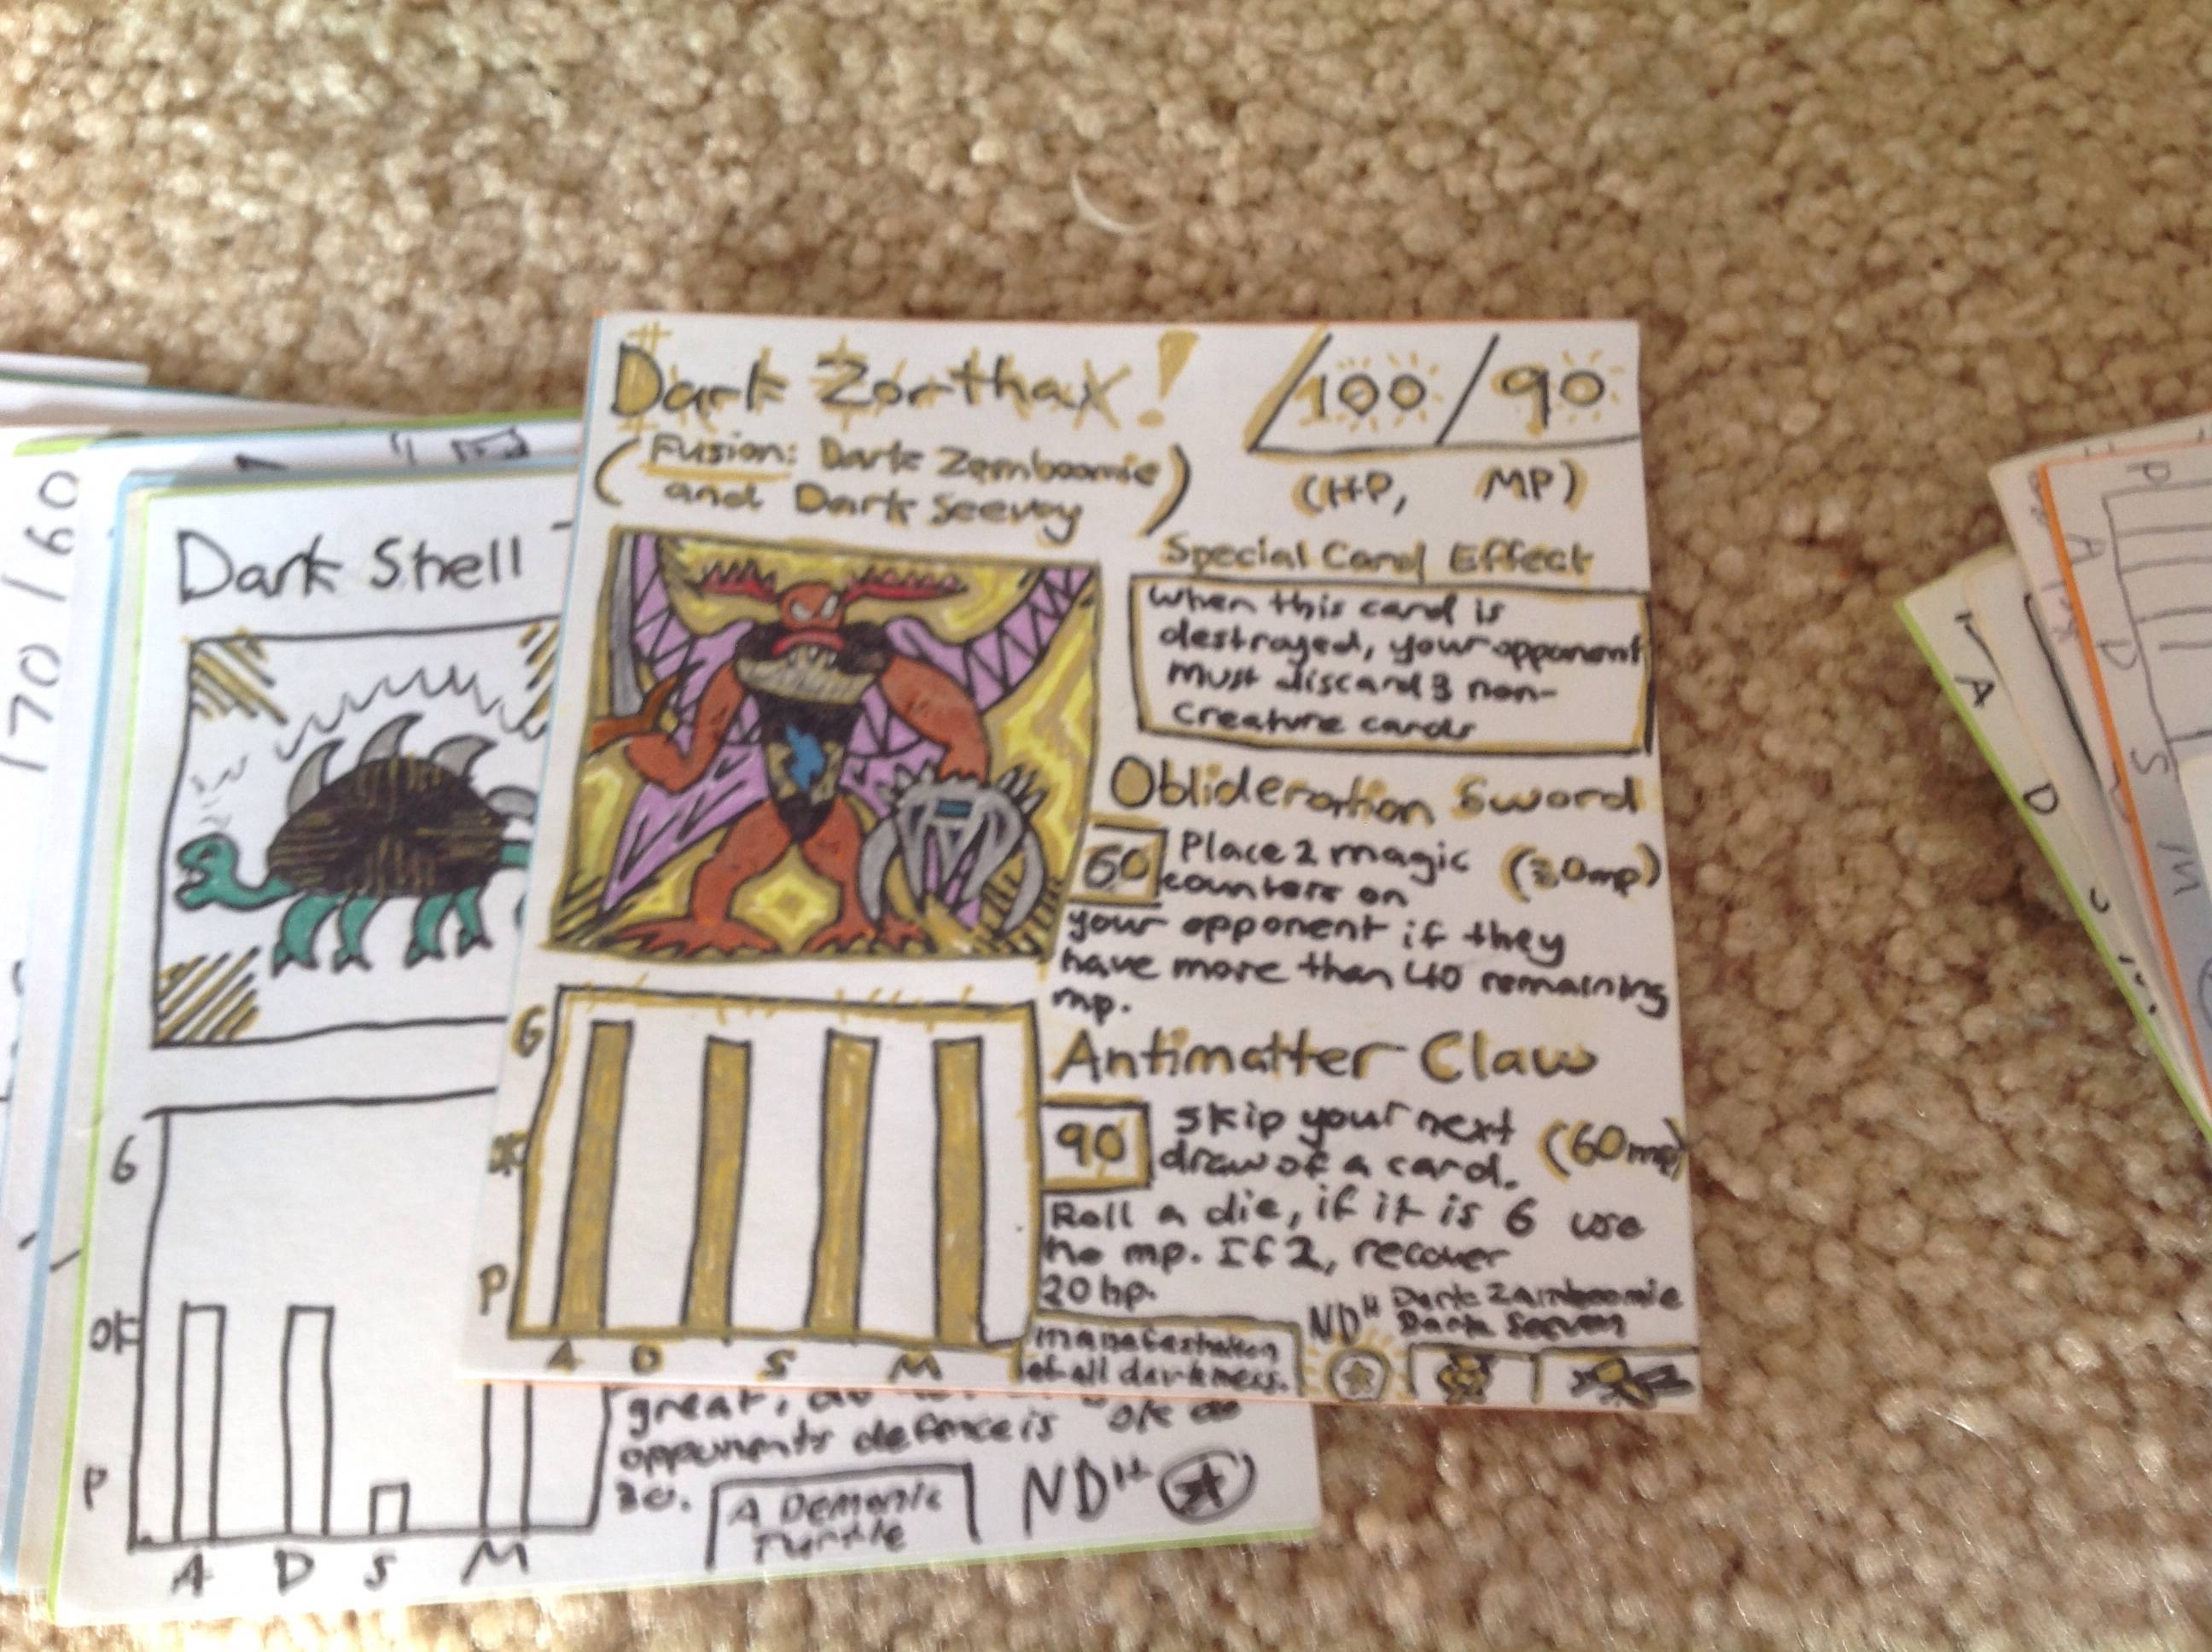 Dark Zorthax!
100/90
(Fusion: Dark Zamboomie
and Dark Seevoy)
(HP, MP)
Special Card Effect
When this card is
destroyed, your opponent
Must discard 3 non-
creature cards
Oblideration Sword
60 Place 2 magic (30mp)
counters on
your opponent if they
have more than 40 remaining
mp.
Antimatter Claw
90 Skip your next (60mp)
draw of a card.
Roll a die, if it is 6 use
no mp. If 2, recover
20 hp.
NDH Dark Zamboomie
Dark Seevoy
of all darkness.
G
OK
P
A D S M
Dark Shell
G
OK
P
A D S M
great,
opponents defence is ok do
30.
A Demonic
Turtle
NDH
170/60
P
A
D
S
M
A
D